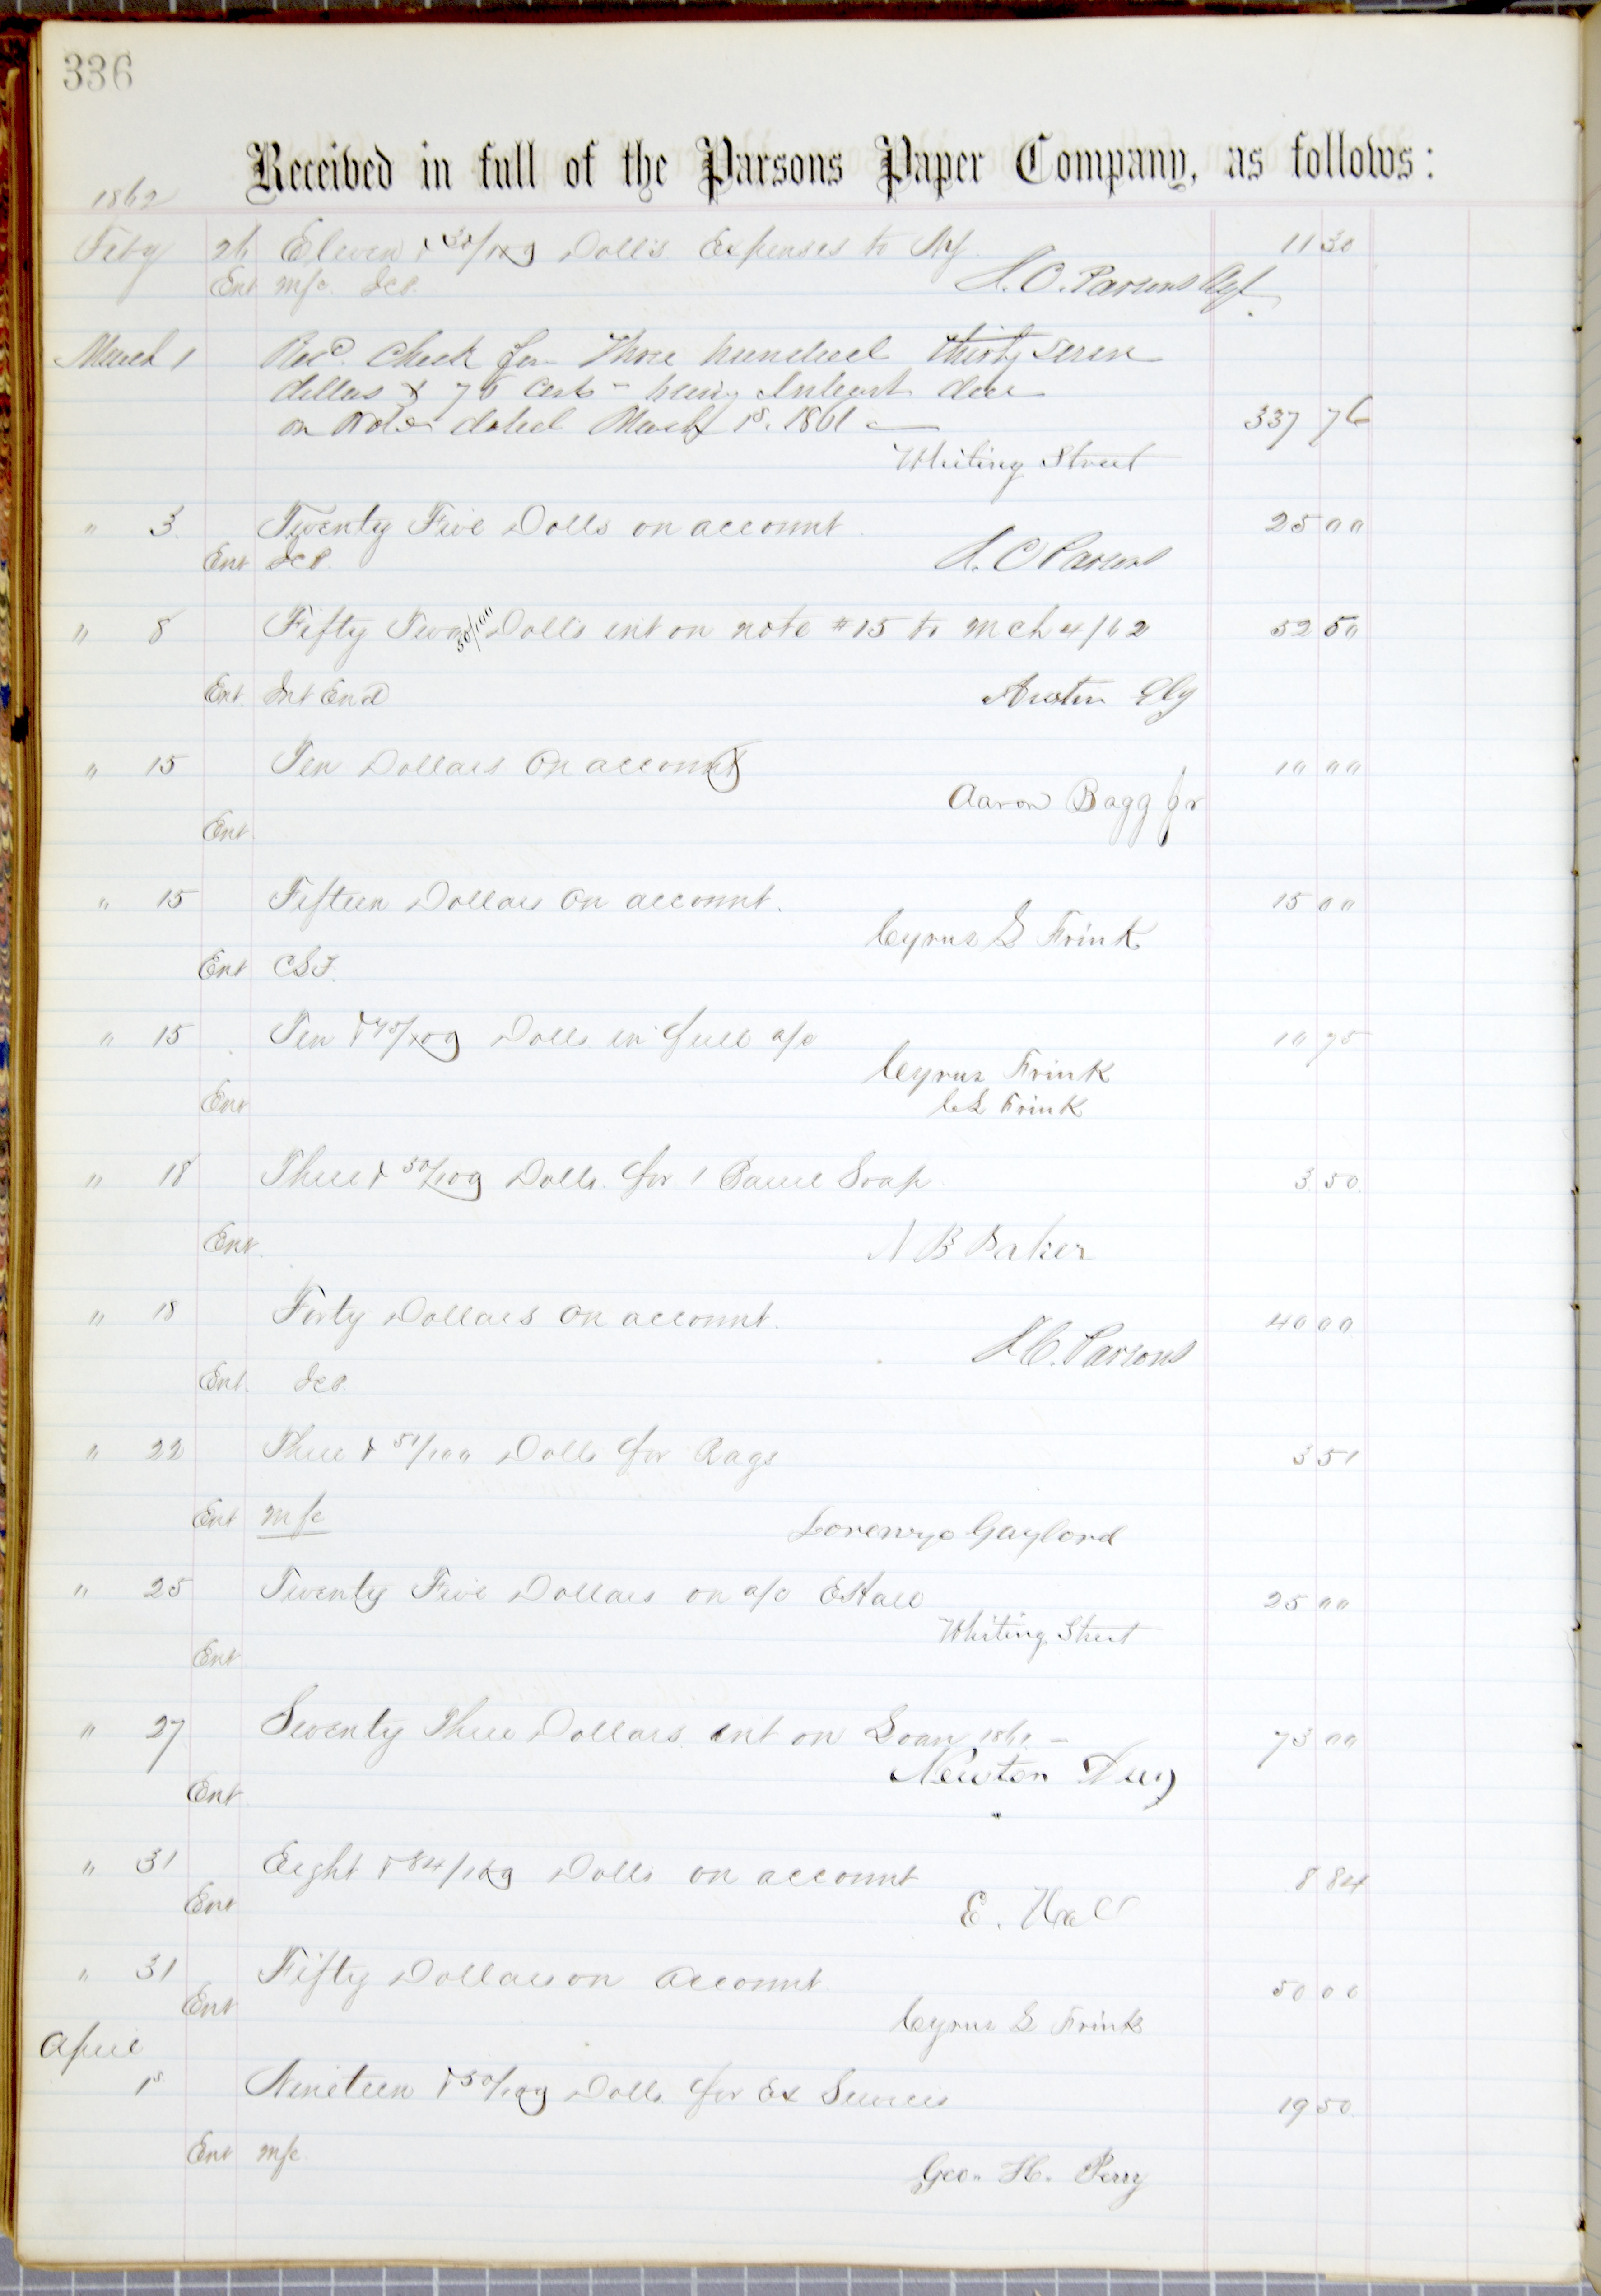 336
Received in full of the Parsons Paper Company, as follows:
1862
Feby 26 Eleven & 30/100 Dolls Expenses to NY. 11 30
Ent m/c. JCP. J. C. Parsons Agt
March 1 Recd. Check for Three hundred thirty seven
dollars & 76 cents - being Interest due
on Note dated March 1st. 1861 — 337 76
Whiting Street
" 3. Twenty Five Dolls on account 25 00
Ent JCP. J. C Parsons
" 8 Fifty Two 50/100 Dolls int on note #15 to Mch 4/62 52 50
Ent. Int End Austin Ely
" 15 Ten Dollars On account 10 00
Aaron Bagg Jr
Ent.
" 15 Fifteen Dollars On account. 15 00
Cyrus S Frink
Ent CSF.
" 15 Ten & 95/100 Dolls in full a/c 10 95
Cyrus Frink
Ent CS Frink
" 18 Three & 50/100 Dolls. for 1 Barrel Soap. 3.50.
Ent. A B Baker
" 18 Forty Dollars On account. 40 00
J C. Parsons
Ent. JCP.
" 22 Three & 51/100 Dolls for Rags 3 51
Ent m/c Lorenzo Gaylord
" 25 Twenty Five Dollars on a/c E Hall 25 00
Whiting Street
Ent
" 27 Seventy Three Dollars int on Loan 1861 - 73 00
Newton Day
Ent
" 31 Eight & 84/100 Dolls on account 8 84
Ent E. Hall
" 31 Fifty Dollars on Account. 50 00
Ent Cyrus S Frink
April
1st Nineteen & 50/100 Dolls. for Ex Services 19 50
Ent m/c. Geo. H. Perry